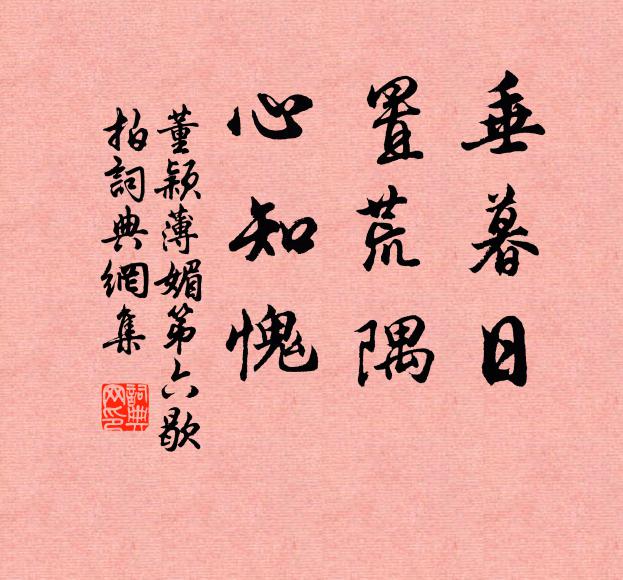 垂暮日
置荒隅
心知愧
董颖薄媚第六歇
拍詞典網集
詞典网印